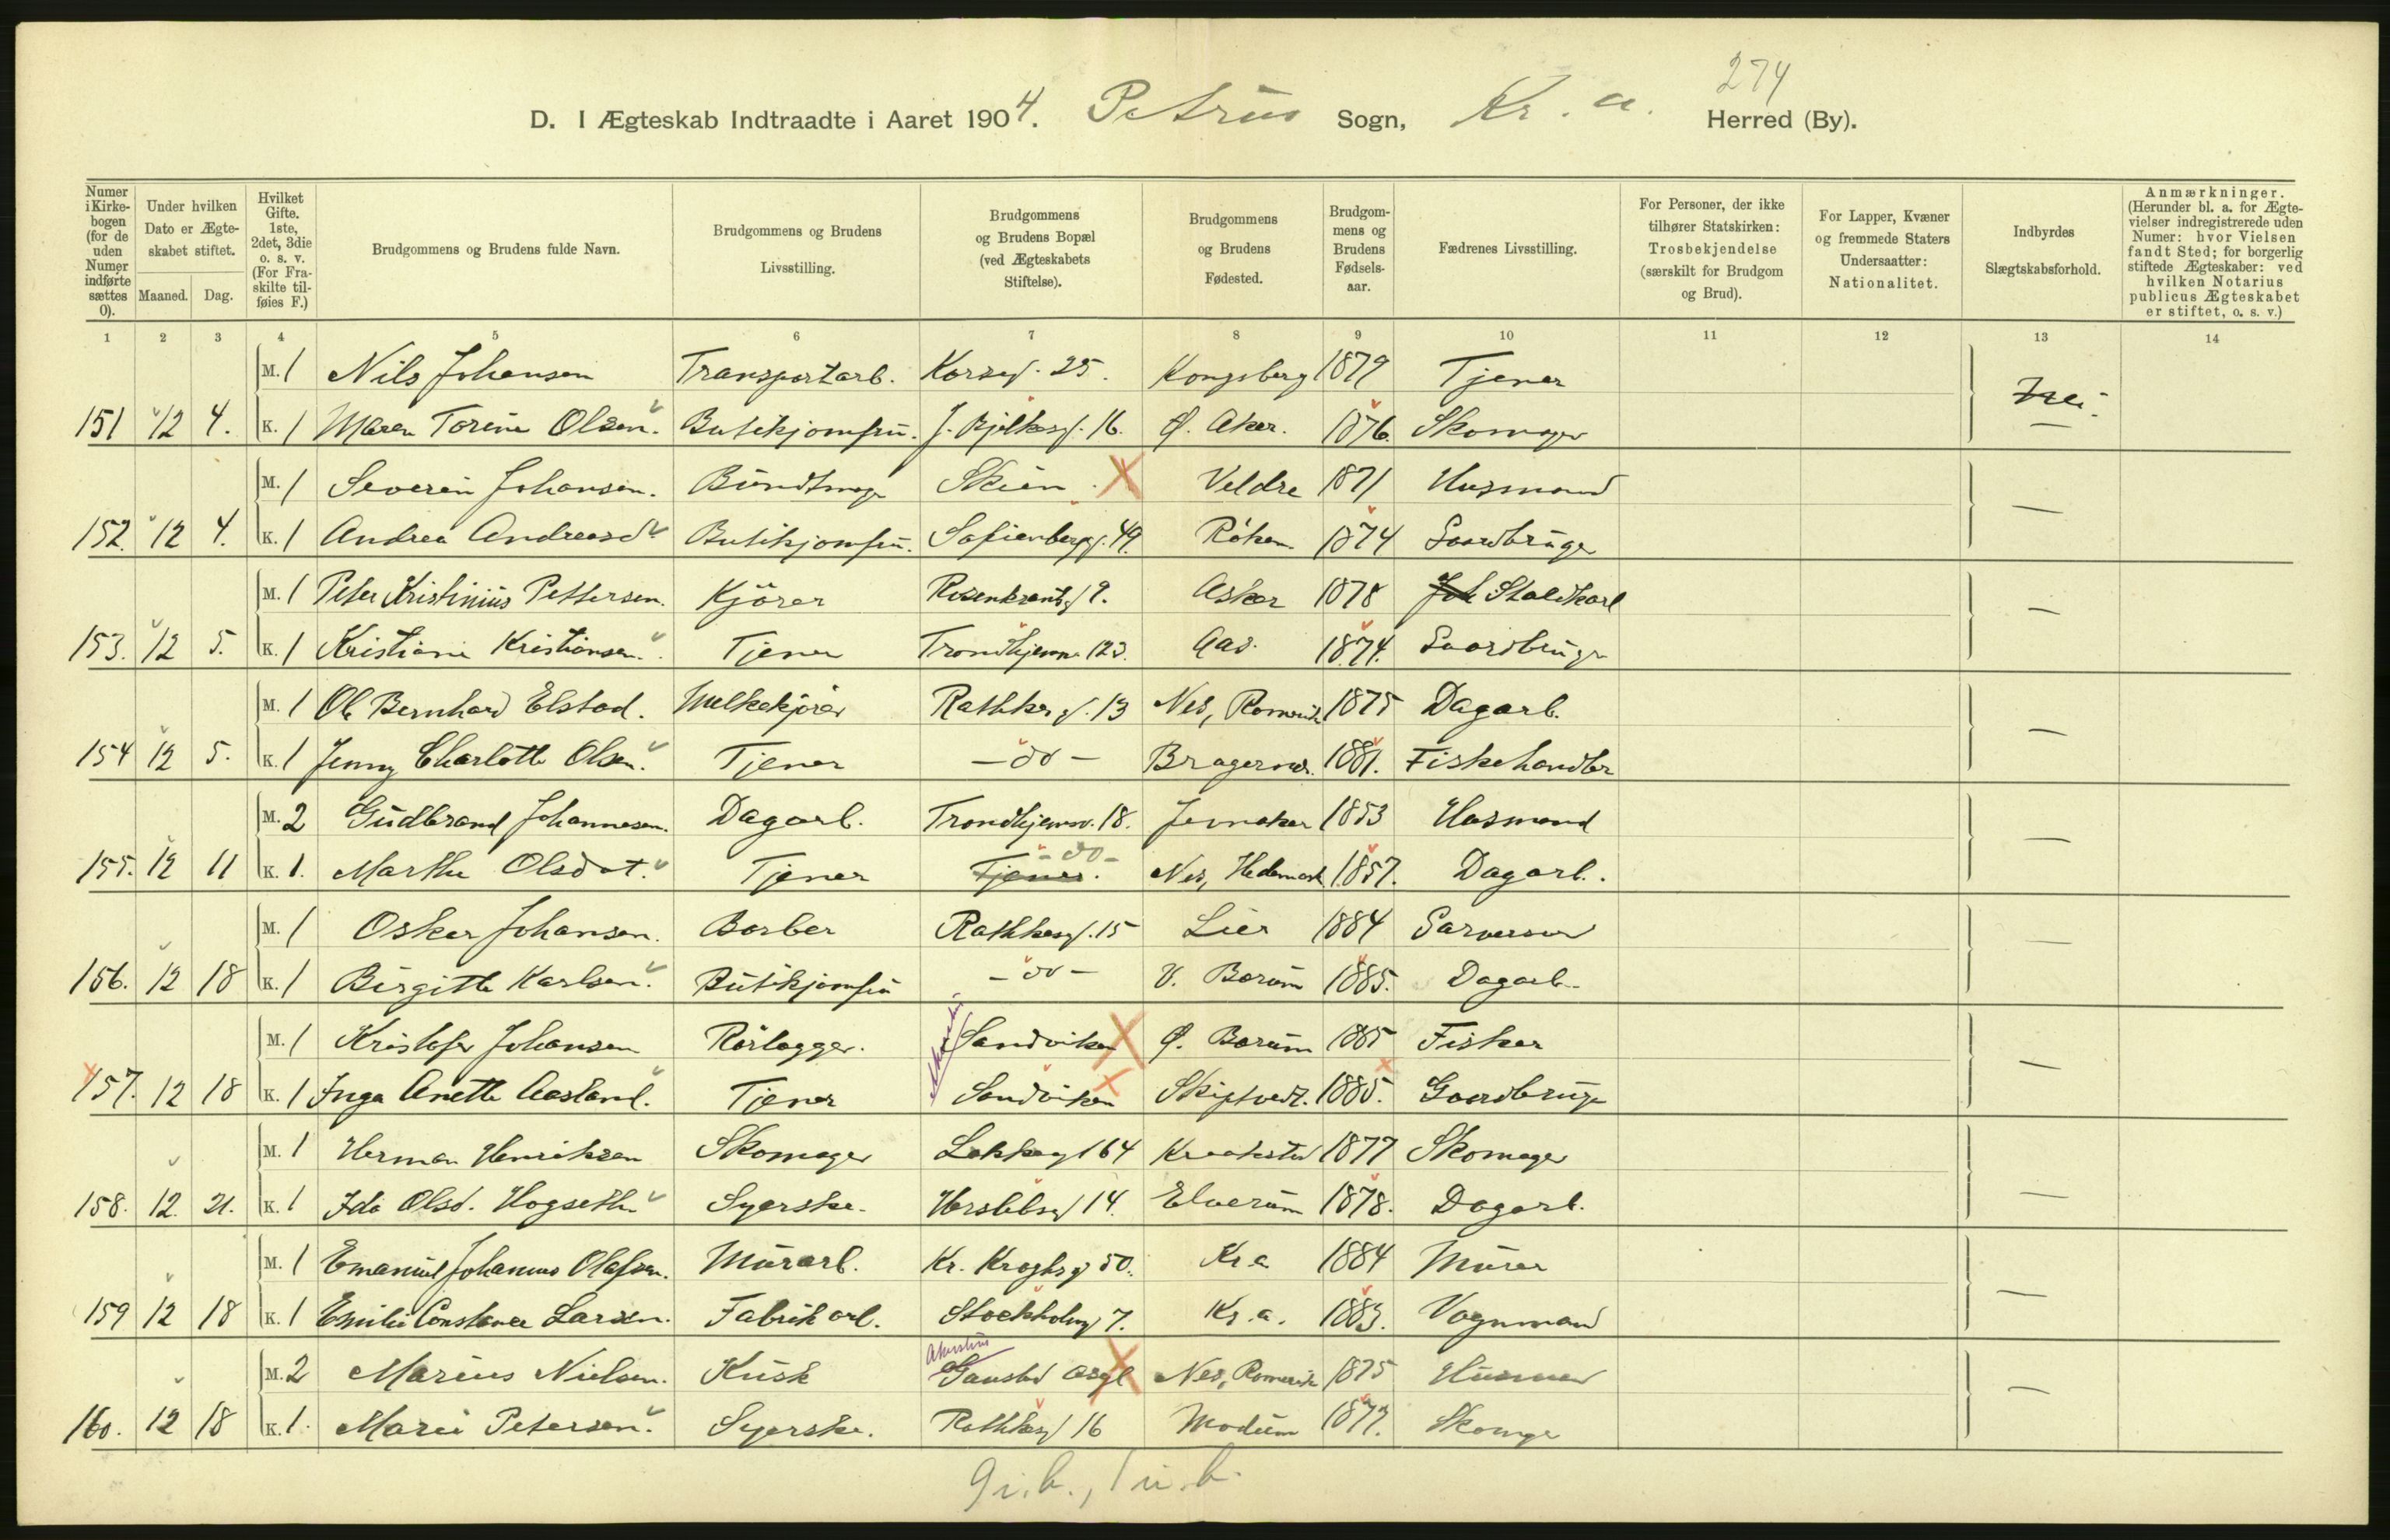 274
D. I Ægteskab Indtraadte i Aaret 1904. Petrus Sogn, Kr. a. Herred (By).
Numer i Kirke-bogen (for de uden Numer indførte sættes 0). | Under hvilken Dato er Ægte-skabet stiftet. Maaned. Dag. | Hvilket Gifte. 1ste, 2det, 3die o. s. v. (For Fra-skilte til-føies F.) | Brudgommens og Brudens fulde Navn. | Brudgommens og Brudens Livsstilling. | Brudgommens og Brudens Bopæl (ved Ægteskabets Stiftelse). | Brudgommens og Brudens Fødested. | Brudgom-mens og Brudens Fødsels-aar. | Fædrenes Livsstilling. | For Personer, der ikke tilhører Statskirken: Trosbekjendelse (særskilt for Brudgom og Brud). | For Lapper, Kvæner og fremmede Staters Undersaatter: Nationalitet. | Indbyrdes Slægtskabsforhold. | Anmærkninger. (Herunder bl. a. for Ægte-vielser indregistrerede uden Numer: hvor Vielsen fandt Sted; for borgerlig stiftede Ægteskaber: ved hvilken Notarius publicus Ægteskabet er stiftet, o. s. v.)
1 2 3 4 5 6 7 8 9 10 11 12 13 14
M. 1 Nils Johansen Transportarb. Korsg. 25. Kongsberg 1879 Tjener
151 12 4. K. 1 Maren Torine Olsen. Butikjomfru. J. Bjelkesg. 16. Ø. Aker. 1876. Skomager Nei.
M. 1 Severin Johansen. Bundtmager Skien Veldre 1871 Husmand
152. 12 4. K. 1 Andrea Andreasd. Butikjomfru. Sofienbergg. 49. Røken 1874 Gaardbruger —
M. 1 Peter Kristinius Pettersen. Kjører Rosenkrantzg 9. Asker 1878 Staldkarl
153. 12 5. K. 1 Kristiane Kristiansen. Tjener Trondhjemsv. 123. Aas. 1874. Gaardbruger —
M. 1 Ole Bernhard Elstad. Melkekjører Rathkes g. 13 Nes, Romerike 1875 Dagarb.
154 12 5. K. 1 Jenny Charlotte Olsen. Tjener — do — Bragernes. 1881. Fiskehandler —
M. 2 Gudbrand Johannesen. Dagarb. Trondhjemsv. 18. Jevnaker 1853 Husmand
155. 12 11 K. 1. Marthe Olsdat. Tjener Tjener. - do - Nes, Hedemark 1857. Dagarb. —
M. 1 Oskar Johansen. Barber Rathkesg. 15 Lier 1884 Garversvend
156. 12 18 K. 1 Birgitte Karlsen. Butikjomfru — do — V. Bærum 1885. Dagarb. —
M. 1 Kristofer Johansen Rørlægger. Sandviken Ø. Bærum 1885 Fisker
157. 12 18 K. 1 Inga Anette Aasland. Tjener Sandviken Skiptvedt. 1885. Gaardbruger —
M. 1 Herman Henriksen Skomager Lakkeg 64 Kraakstad 1877 Skomager
158. 12. 21. K. 1 Ida Olsd. Hogseth Syerske. Herslebsg 14. Elverum 1878. Dagarb. —
M. 1 Emanuel Johannes Olafsen. Murarb. Kr. Kroghsg 50. Kr.a 1884 Murer
159 12 18 K. 1 Emilie Constance Larsen. Fabrikarb. Stockholmg 7. Kr.a. 1883. Vognmand —
M. 2 Marius Nielsen. Kusk Gaustad asyl Nes, Romerike 1875 Husmand
160. 12 18 K. 1. Marie Petersen. Syerske. Rathkesg 16 Modum 1877. Skomager —
9 i. b., 1 u. b.